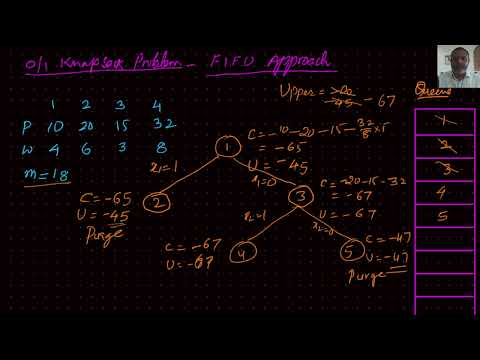 0/1 Knapsack Problem - F.I.F.O Approach
Queue
Upper = -45 -67
1 2 3 4
P 10 20 15 32
W 4 6 3 8
m = 18
1
C = -10-20-15-32/8 x 5
= -65
U = -45
x1=1
x1=0
2
C = -65
U = -45
Purge
3
C = -20-15-32
= -67
U = -67
x2=1
x2=0
4
C = -67
U = -67
5
C = -47
U = -47
Purge
1
2
3
4
5